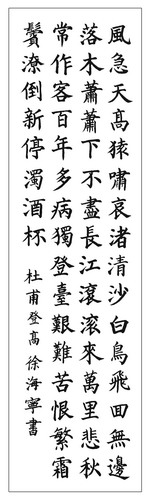 風急天高猿嘯哀渚清沙白鳥飛回無邊
落木蕭蕭下不盡長江滾滾來萬里悲秋
常作客百年多病獨登臺艱難苦恨繁霜
鬢潦倒新停濁酒杯 杜甫登高 徐海寧書